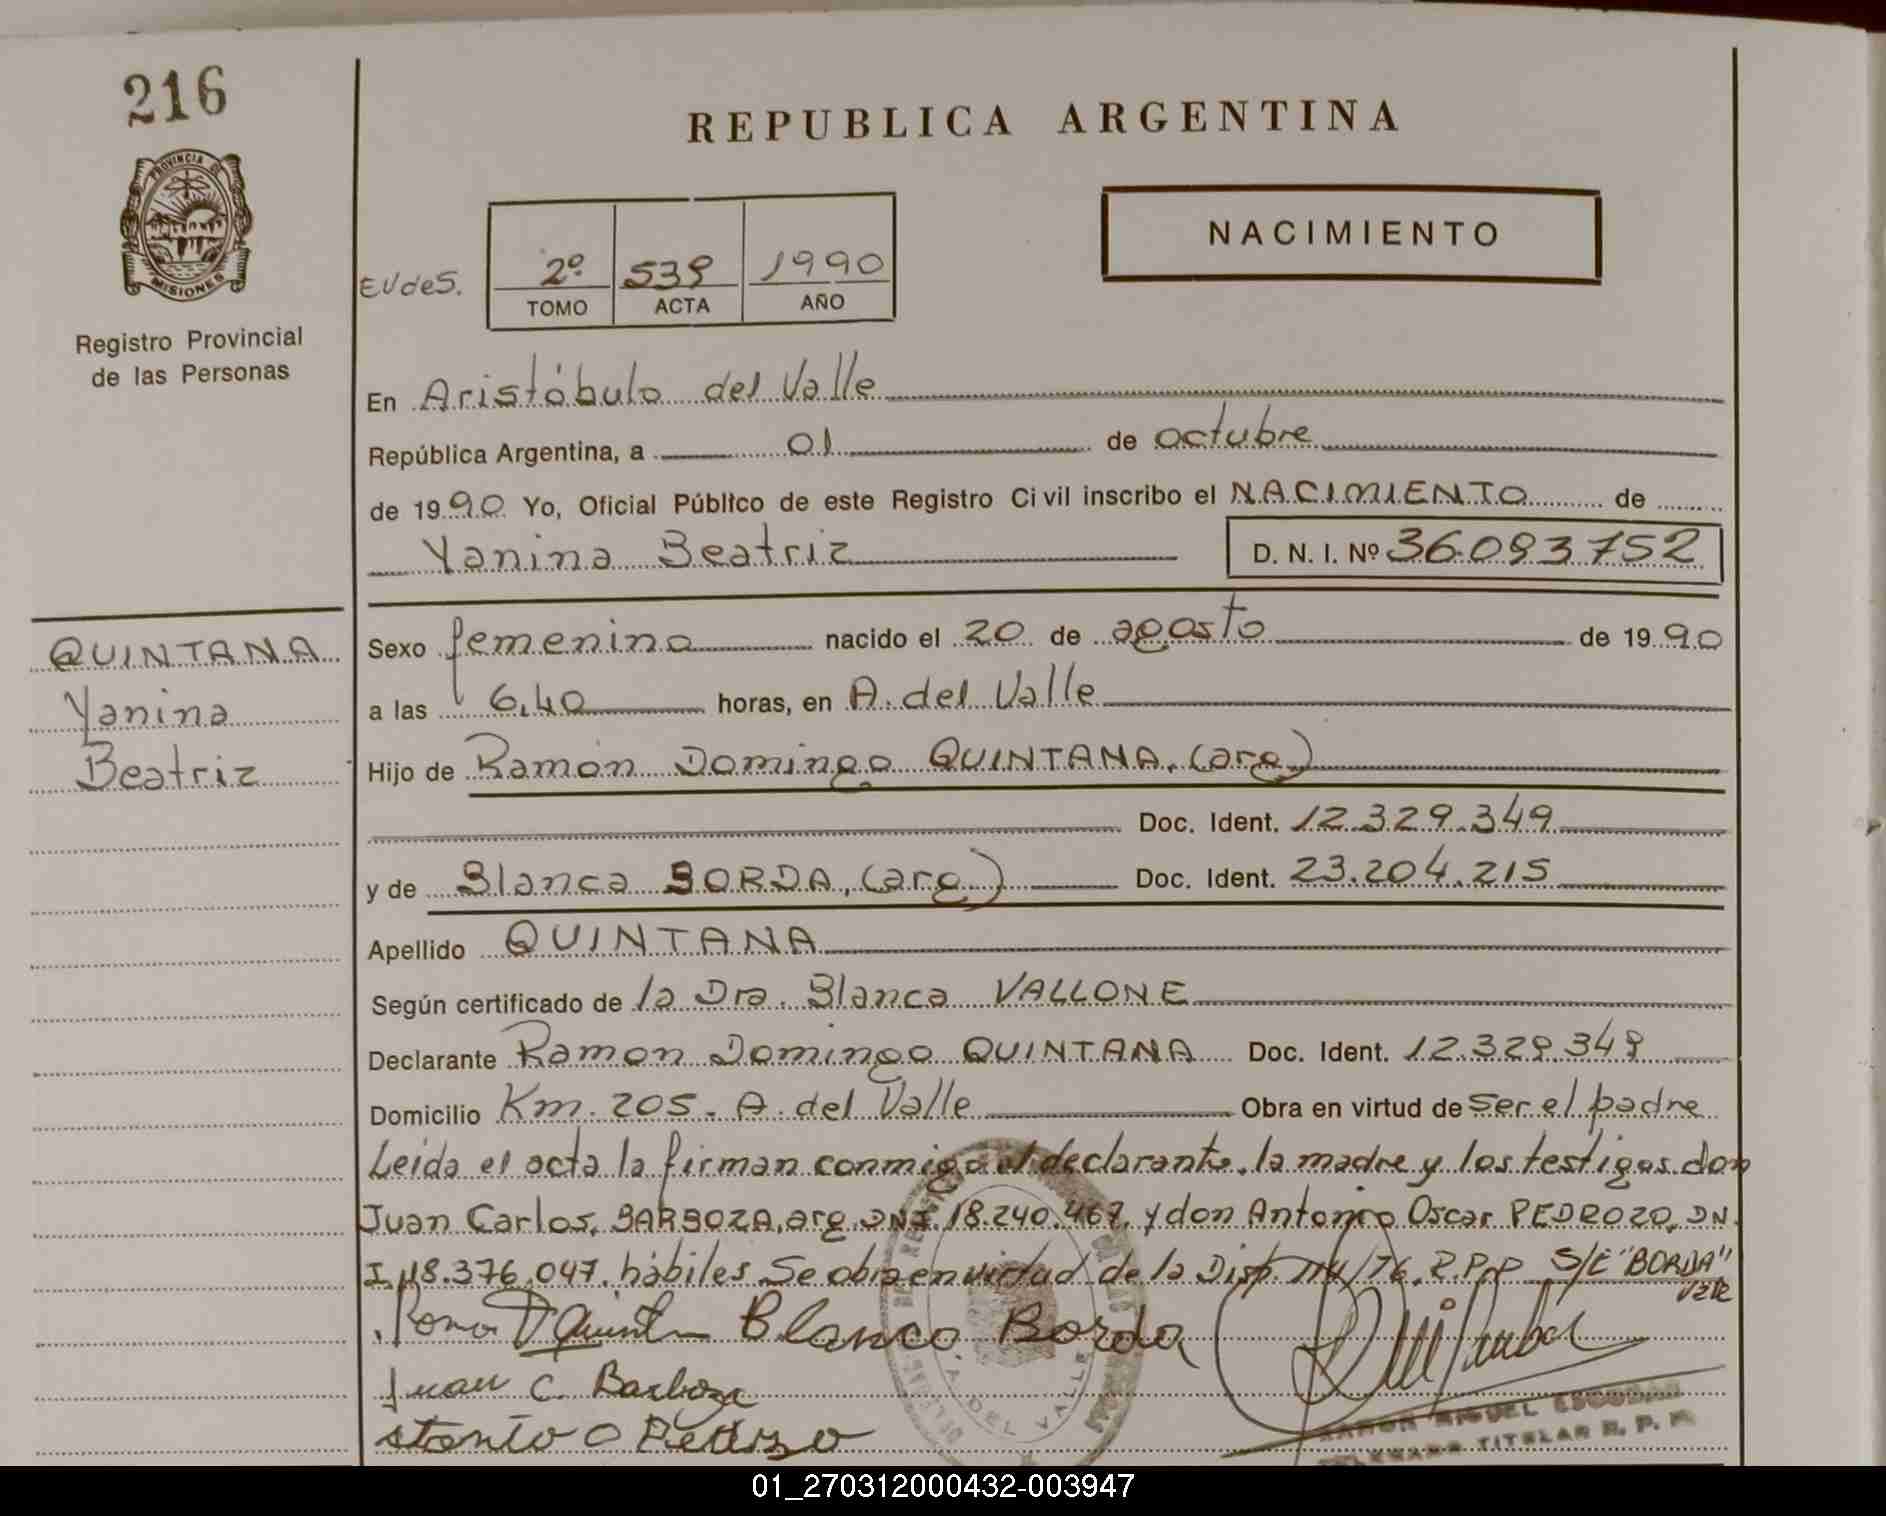 216
PROVINCIA DE
MISIONES
Registro Provincial
de las Personas
REPUBLICA ARGENTINA
NACIMIENTO
EUdeS.
2º 539 1990
TOMO ACTA AÑO
En Aristóbulo del Valle
República Argentina, a 01 de octubre
de 1990 Yo, Oficial Público de este Registro Civil inscribo el NACIMIENTO de
Yanina Beatriz D. N. I. Nº 36.093.752
QUINTANA
Yanina
Beatriz
Sexo femenino nacido el 20 de agosto de 1990
a las 6,40 horas, en A. del Valle
Hijo de Ramón Domingo QUINTANA, (arg)
Doc. Ident. 12.329.349
y de Blanca BORDA, (arg) Doc. Ident. 23.204.215
Apellido QUINTANA
Según certificado de la Dra. Blanca VALLONE
Declarante Ramon Domingo QUINTANA Doc. Ident. 12.329.349
Domicilio Km. 205. A. del Valle Obra en virtud de Ser el padre
Leida el acta la firman conmigo el declarante, la madre y los testigos don
Juan Carlos, BARBOZA, arg. DNI. 18.240.467, y don Antonio Oscar PEDROZO, DN.
I. 18.376.047. hábiles Se obra en virtud de la Disp. 114/76. R.P.P S/E "BORDA"
Vale
Blanca Borda
Juan C. Barboza
O Pedrozo
A. DEL VALLE
RAMON MIGUEL ESCOBAR
TITULAR R. P. P.
01_270312000432-003947